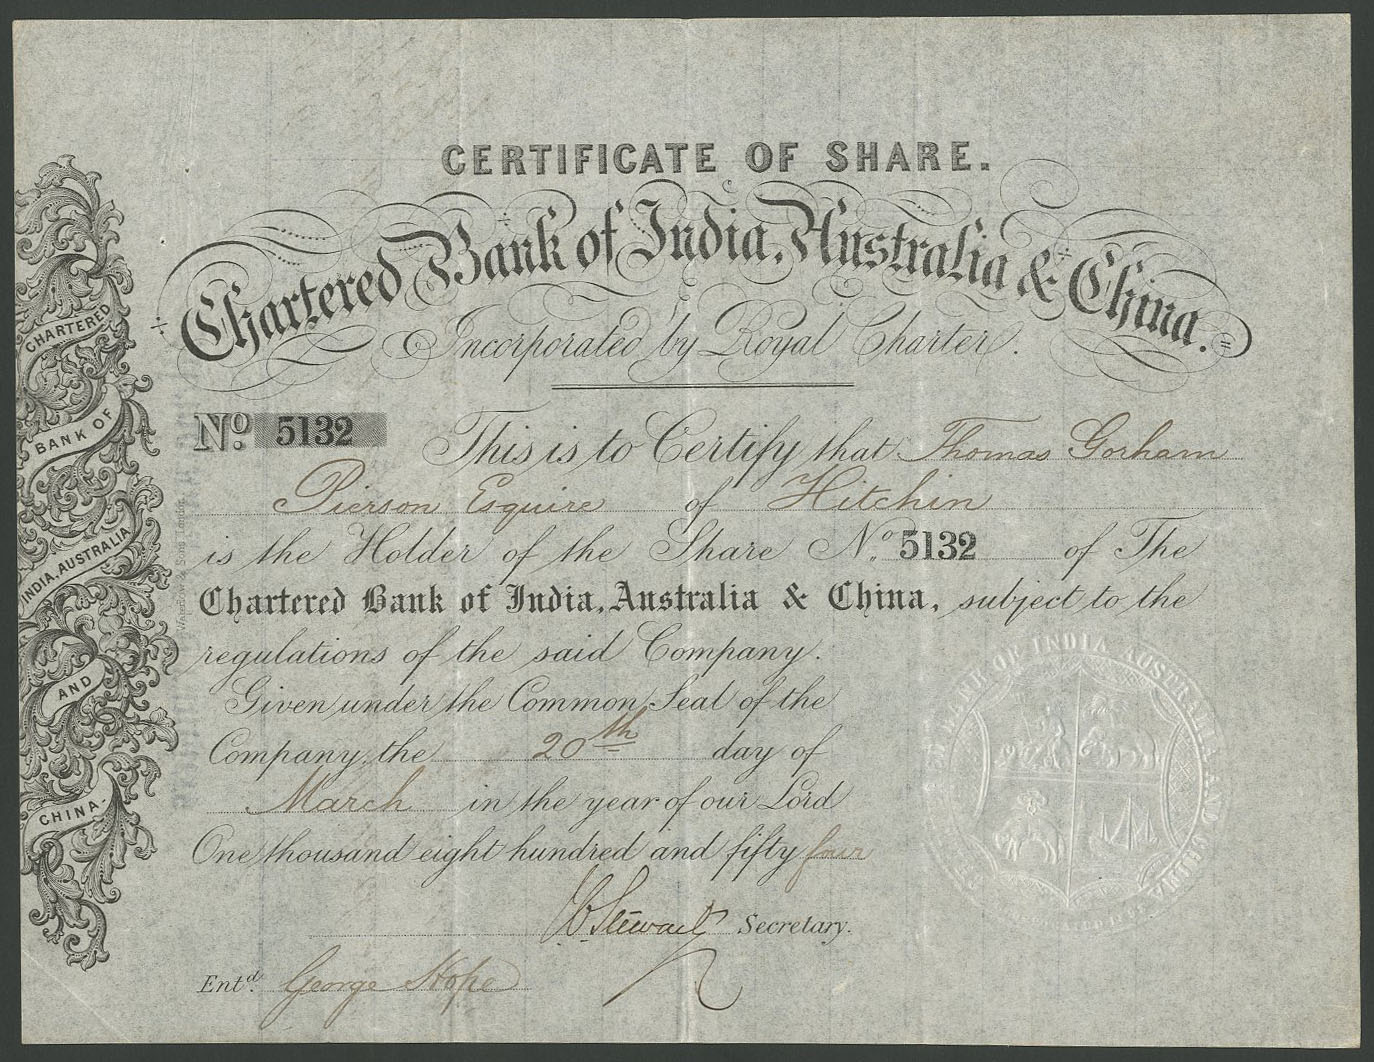 CERTIFICATE OF SHARE.
Chartered Bank of India, Australia & China.
Incorporated by Royal Charter.
No. 5132 This is to Certify that Thomas Gorham
Pierson Esquire of Hitchin
is the Holder of the Share No. 5132 of The
Chartered Bank of India, Australia & China, subject to the
regulations of the said Company.
Given under the Common Seal of the
Company, the 20th day of
March in the year of our Lord
One thousand eight hundred and fifty four
Stewart Secretary.
Entd. George Hope
CHARTERED
BANK OF
INDIA, AUSTRALIA
AND
CHINA.
Waterlow & Sons London
BANK OF INDIA AUSTRALIA AND CHINA